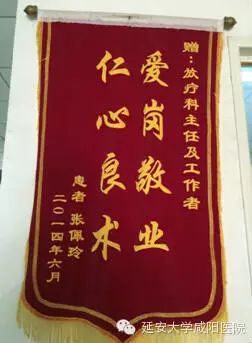 赠：放疗科主任及工作者
爱岗敬业
仁心良术
患者 张佩玲
二〇一四年六月
延安大学咸阳医院